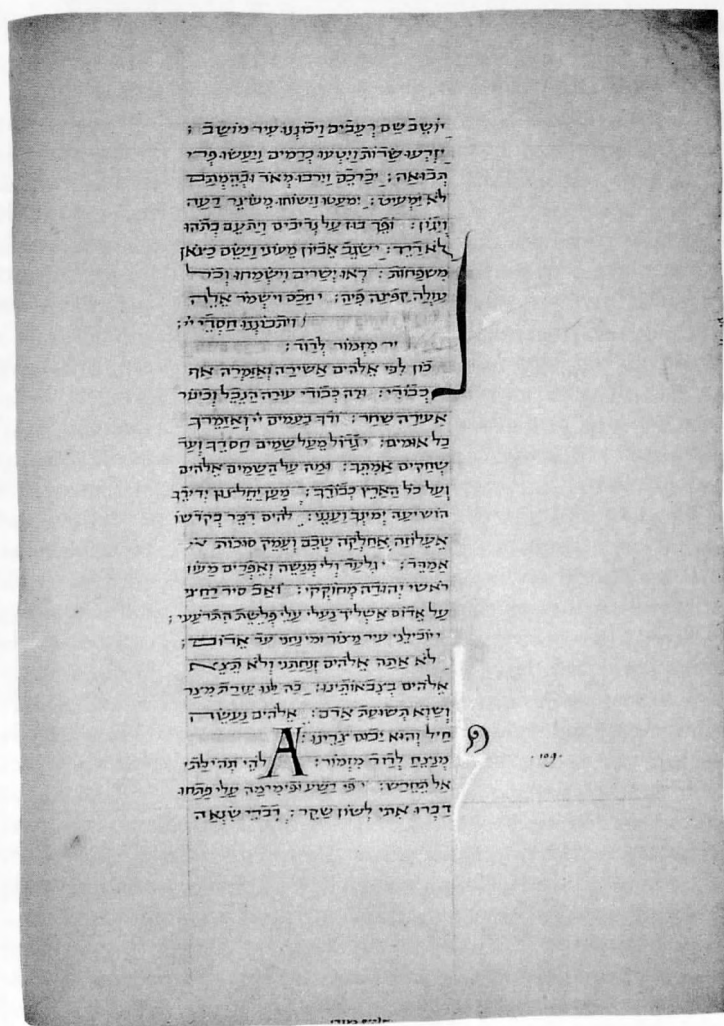 יושב שם רעבים ויכוננו עיר מושב :
יזרעו שדות ויטעו כרמים ויעשו פרי
תבואה : יברכם וירבו מאד ובהמתם
לא ימעיט : ימעטו וישוחו מעוצר רעה
ויגון : ופך בוז על נדיבים ויתעם בתהו
לא דרך : ישגב אביון מעוני וישם כצאן
משפחות : ראו ישרים וישמחו וכל
עולה קפצה פיה : י חכם וישמר אלה
ויתבוננו חסדי יי :
יר מזמור לדוד :
כון לבי אלהים אשירה ואזמרה אף
כבודי : ורה כבודי עורה הנבל וכינור
אעירה שחר : ודך בעמים יי ואזמרך
בל אומים : י גדול מעל שמים חסדך ועד
שחקים אמתך : ומה על השמים אלהים
ועל כל הארץ כבודך : מען יחלצון ידידך
הושיעה ימינך וענני : להים דבר בקדשו
אעלוזה אחלקה שכם ועמק סוכות
אמדד : י גלעד ולי מנשה ואפרים מעוז
ראשי יהודה מחוקקי : ואב סיר רחצי
על אדום אשליך נעלי עלי פלשת התרועעי :
י יובילני עיר מצור ומי נחני עד אדום :
לא אתה אלהים זנחתני ולא תצא
אלהים בצבאותינו : בה לנו עזרת מצר
ושוא תשועת אדם : אלהים נעשה
חיל והוא יבוס צרינו :
מנצח לדוד מזמור : A להי תהילתי
· 109 ·
אל תחרש : י פי רשע ופי מרמה עלי פתחו
דברו אתי לשון שקר : דברי שנאה